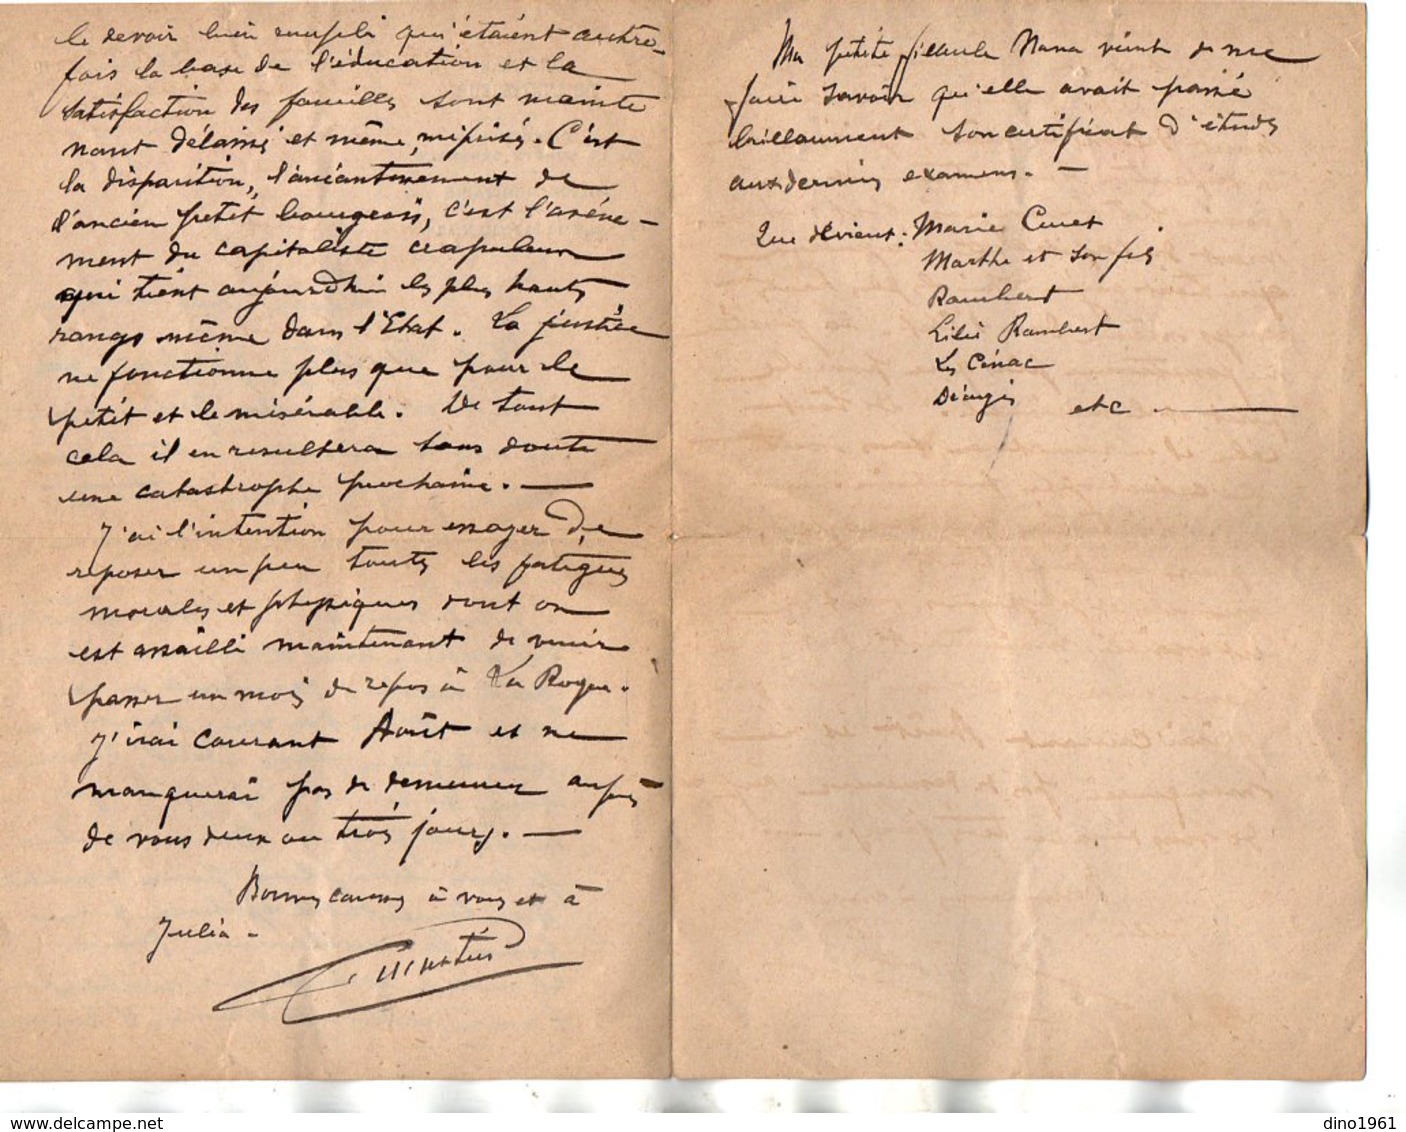 le devoir bien rempli qui étaient autre-
fois la base de l'éducation et la
satisfaction des familles sont mainte
nant délaissés et même méprisés. C'est
la disparition, l'anéantissement de
l'ancien petit bourgeois, c'est l'avène-
ment du capitaliste crapuleux
qui tient aujourd'hui les plus hauts
rangs même dans l'Etat. La justice
ne fonctionne plus que pour le
petit et le misérable. De tout
cela il en resultera sans doute
une catastrophe prochaine. —
J'ai l'intention pour essayer de
reposer un peu toutes les fatigues
morales et physiques dont on
est assailli maintenant de venir
passer un mois de repos à La Roque.
J'irai courant Août et ne
manquerai pas de demeurer auprès
de vous deux ou trois jours. —
Bonnes caresses à vous et à
Julia -
Ma petite filleule Nana vient de me
faire savoir qu'elle avait passé
brillamment son certificat d'études
aux derniers examens. —
Que devient: Marie Cuet
Marthe et son fils
Rambert
Lilie Rambert
Les Cinac
etc —
dino1961